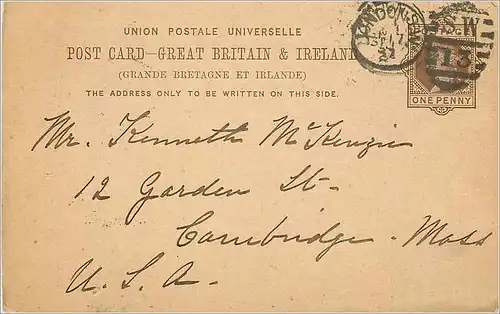 UNION POSTALE UNIVERSELLE
POST CARD—GREAT BRITAIN & IRELAND
(GRANDE BRETAGNE ET IRLANDE)
THE ADDRESS ONLY TO BE WRITTEN ON THIS SIDE.
LONDON S.W
S.W
13
ONE PENNY
Mr. Kenneth McKenzie
12 Garden St-
Cambridge - Mass
U. S. A -